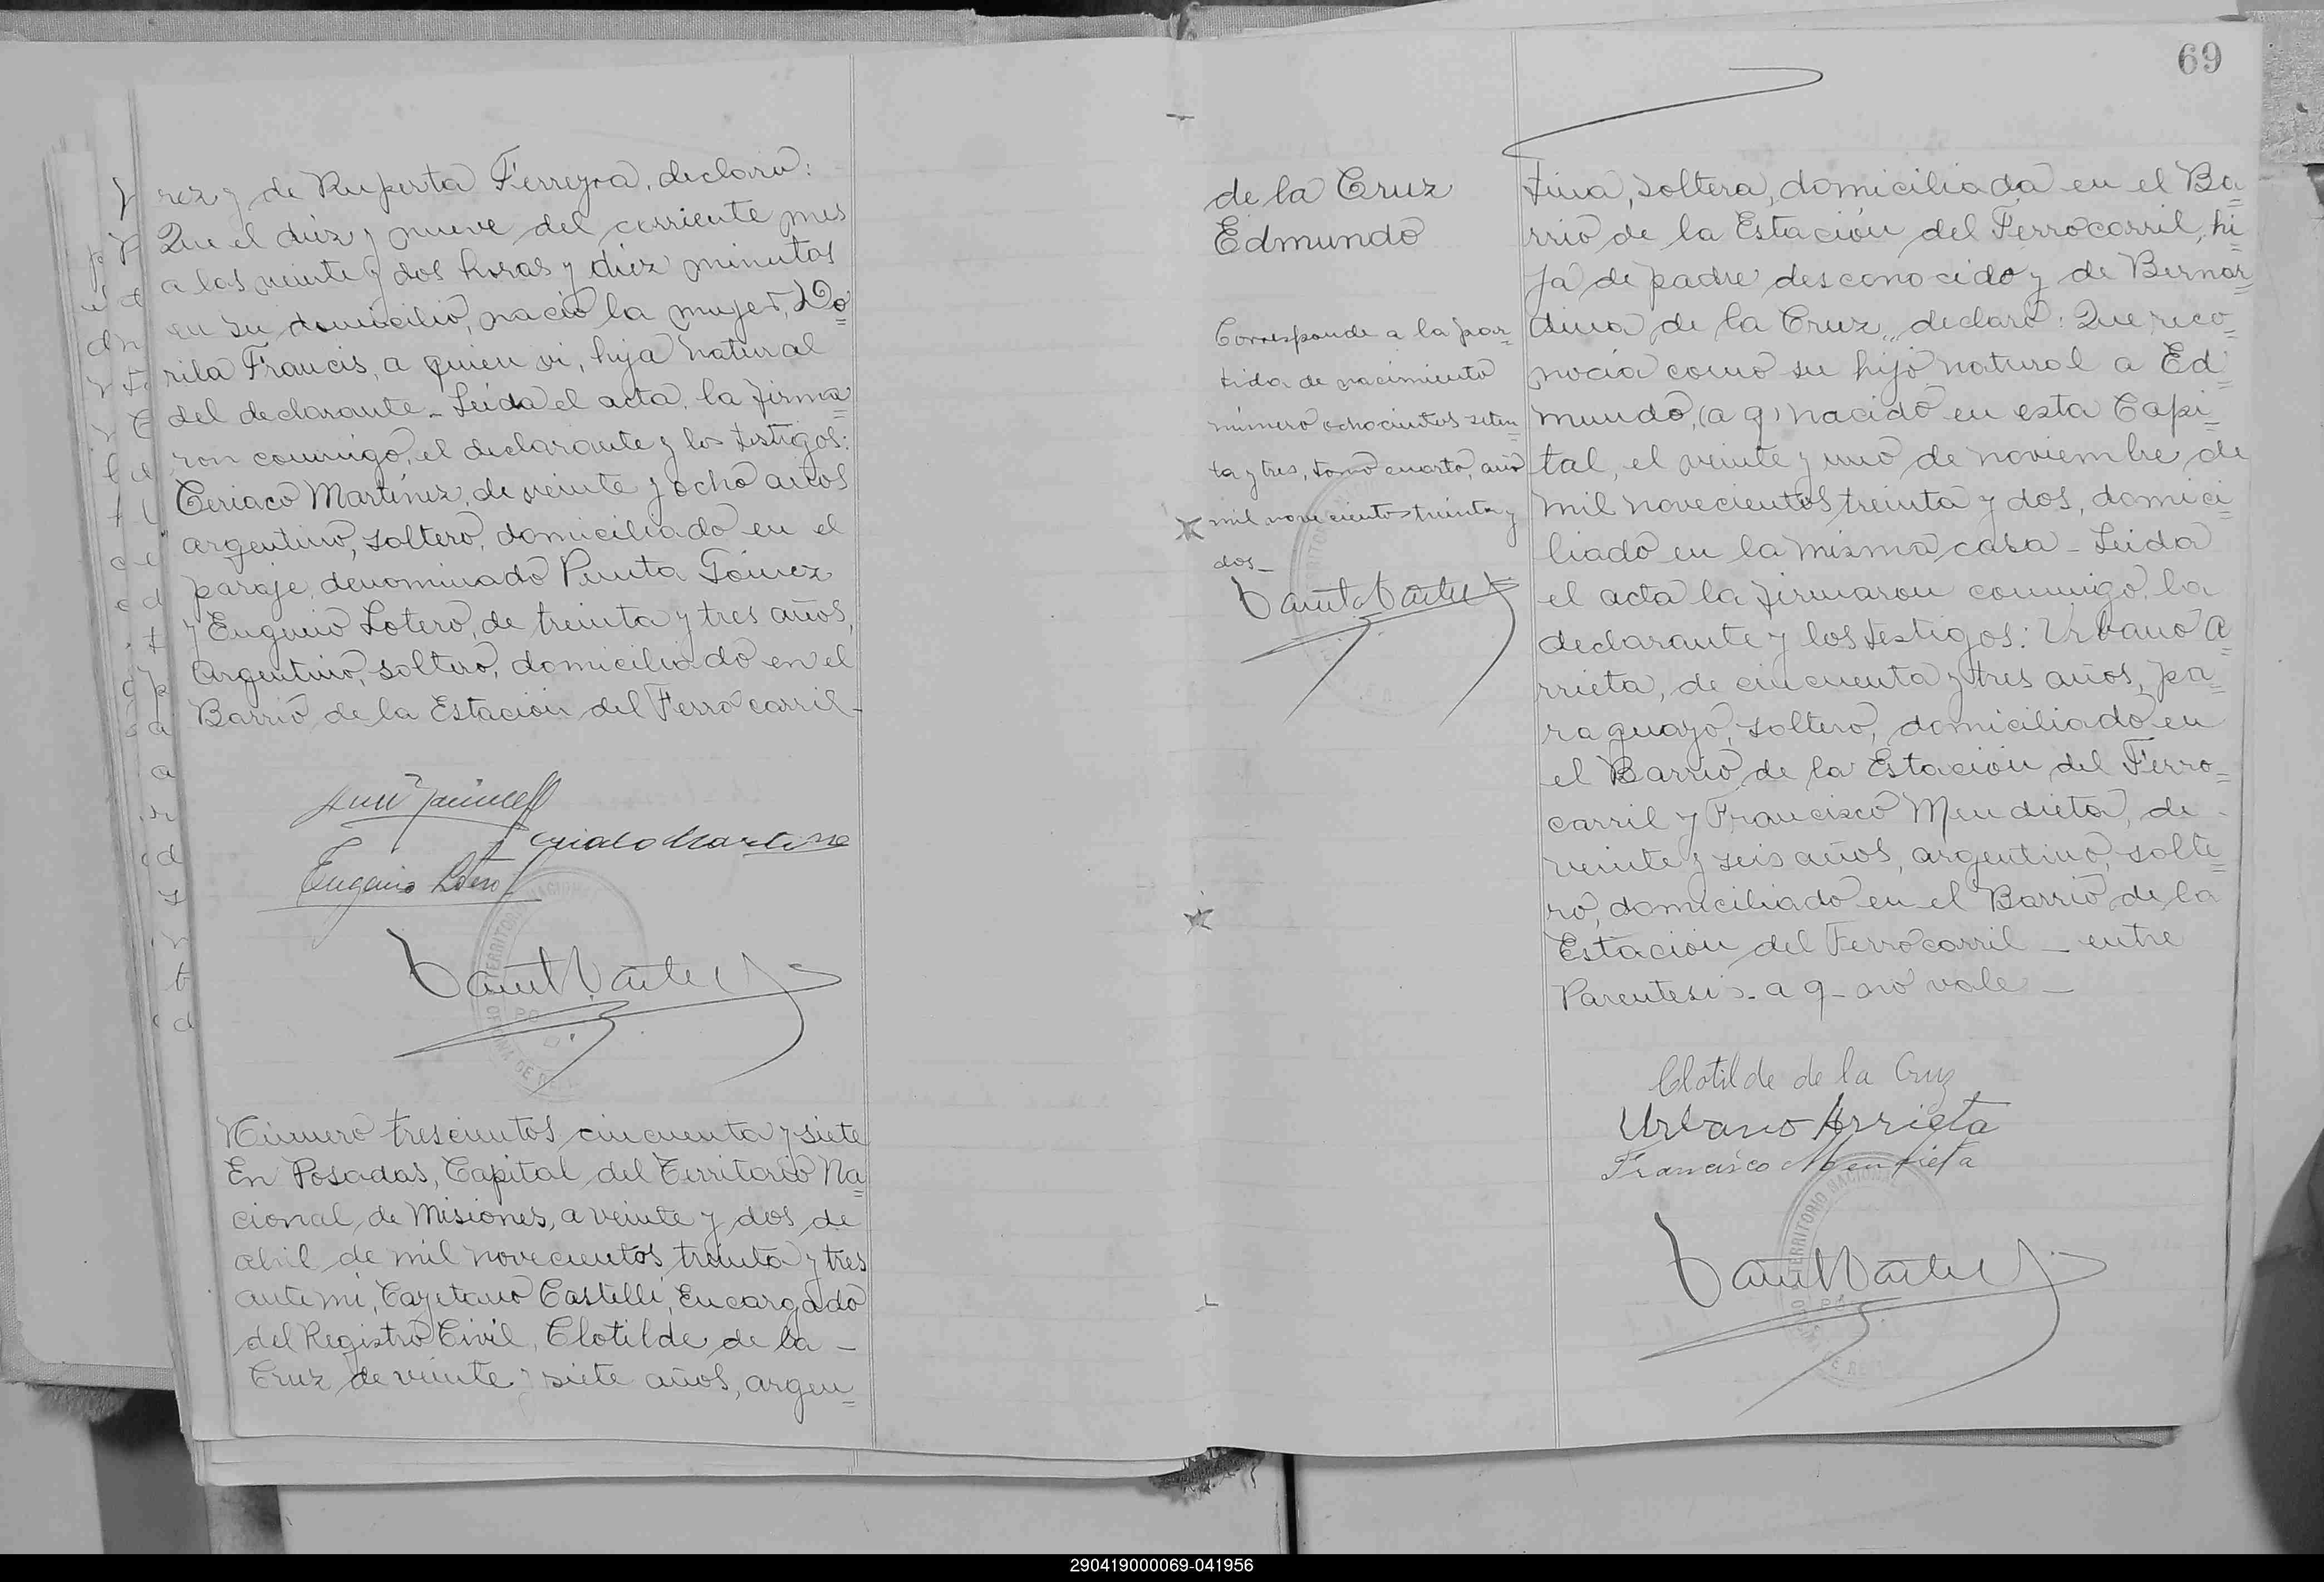 rez y de Ruperta Ferreyra, declaró:
Que el diez y nueve del corriente mes
a las veinte y dos horas y diez minutos
en su domicilio, nació la mujer, Do=
rila Francis, a quien vi, hija natural
del declarante _ Leída el acta, la firma=
ron conmigo, el declarante y los testigos:
Ceriaco Martínez, de veinte y ocho años
argentino, soltero, domiciliado en el
paraje denominado Punta Gómez
y Eugenio Lotero, de treinta y tres años,
argentino, soltero, domiciliado en el
Barrio de la Estación del Ferrocarril _
Eugenio
Número trescientos cincuenta y siete
En Posadas, Capital del Territorio Na=
cional de Misiones, a veinte y dos de
abril de mil novecientos treinta y tres
ante mi, Cayetano Castelli, Encargado
del Registro Civil, Clotilde de la _
Cruz de veinte y siete años, argen=
69
de la Cruz
Edmundo
Corresponde a la par=
tida de nacimiento
número ochocientos seten=
ta y tres, tomo cuarto, año
mil novecientos treinta y
dos _
tina, soltera, domiciliada en el Ba=
rrio de la Estación del Ferrocarril, hi=
ja de padre desconocido y de Bernar=
dina de la Cruz, declaró: Que reco=
nocía como su hijo natural a Ed=
mundo, (a q) nacido en esta Capi=
tal, el veinte y uno de noviembre de
mil novecientos treinta y dos, domici=
liado en la misma casa _ Leida
el acta la firmaron conmigo, la
declarante y los testigos: Urbano A=
rrieta, de cincuenta y tres años, pa=
raguayo, soltero, domiciliado en
el Barrio de la Estación del Ferro=
carril y Francisco Mendieta, de
veinte y seis años, argentino, solte=
ro, domiciliado en el Barrio de la
Estación del Ferrocarril _ entre
Parentesis _ a q _ no vale _
Clotilde de la Cruz
Urbano Arrieta
Francisco Mendieta
TERRITORIO NACIONAL
290419000069-041956